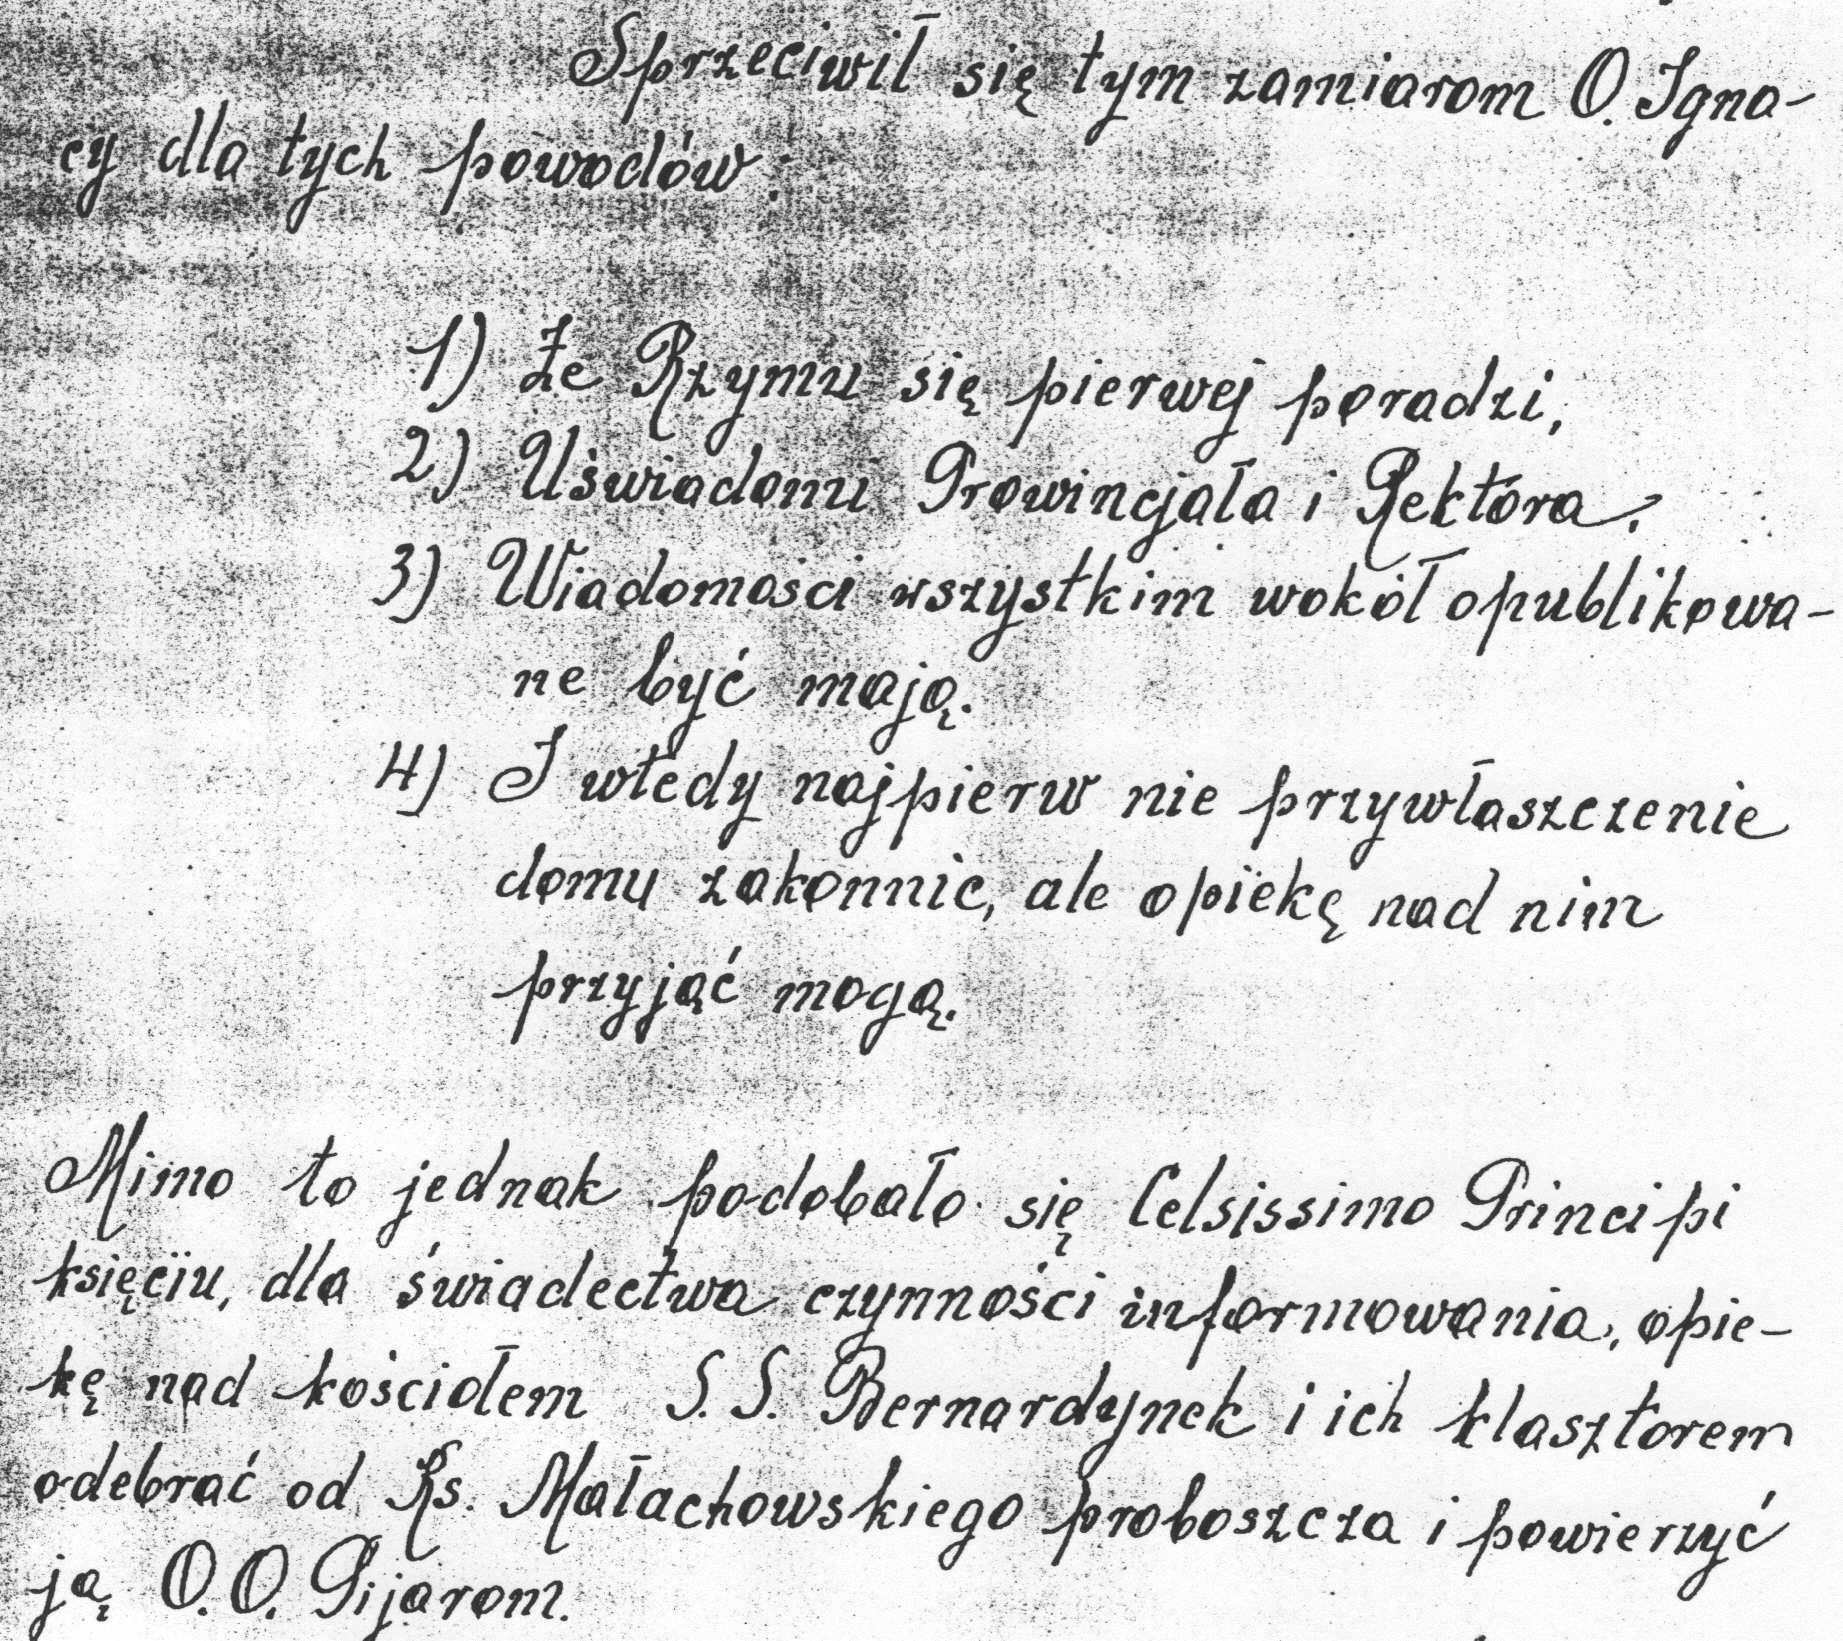 Sprzeciwił się tym zamiarom O. Igna-
cy dla tych powodów:
1) Że Rzymu się pierwej poradzi,
2) Uświadomi Prowincjała i Rektora.
3) Wiadomości wszystkim wokół opublikowa-
ne być mają.
4) I wtedy najpierw nie przywłaszczenie
domu zakonnic, ale opiekę nad nim
przyjąć mogą.
Mimo to jednak podobało się Celsissimo Principi
księciu, dla świadectwa czynności informowania, opie-
kę nad kościołem S. S. Bernardynek i ich klasztorem
odebrać od Ks. Małachowskiego proboszcza i powierzyć
ją O. O. Pijarom.